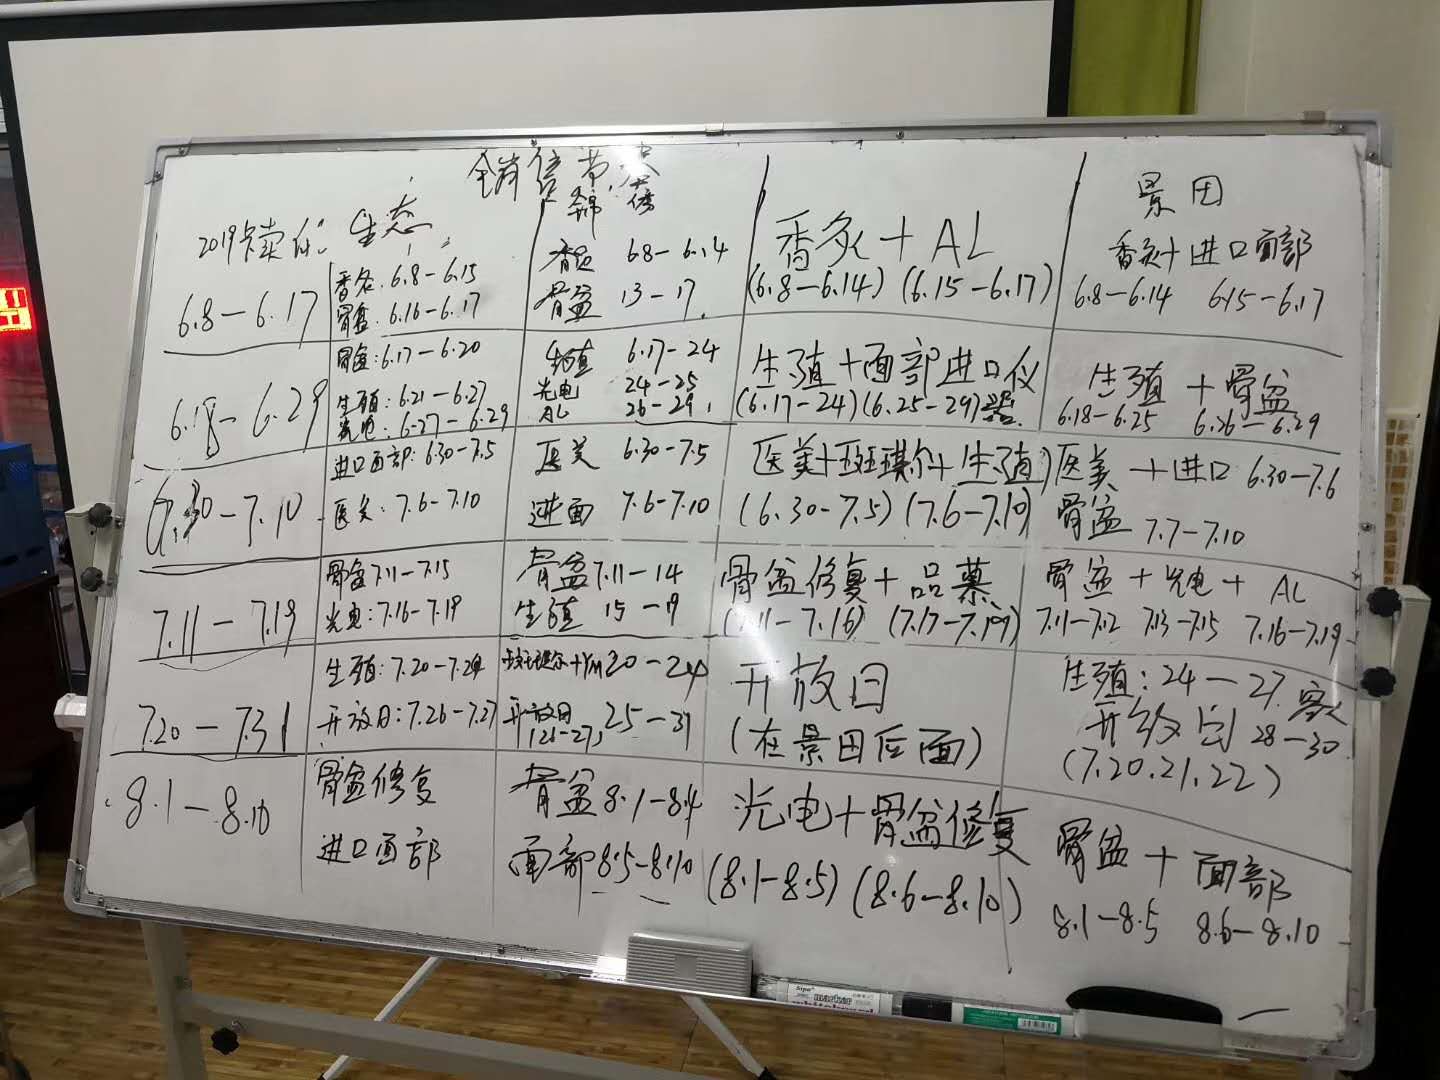 全消售节奏
2019 生态
锦绣
香灸+AL
(6.8-6.14) (6.15-6.17)
景田
香灸+进口面部
6.8-6.14 6.15-6.17
6.8-6.17
香灸:6.8-6.15
骨盆:6.16-6.17
68-6.14
骨盆 13-17
6.18-6.29
骨盆:6.17-6.20
生殖:6.21-6.27
光电:6.27-6.29
生殖 6.17-24
光电 24-25
AL 26-29
生殖+面部进口仪器
(6.17-24)(6.25-29)
生殖+骨盆
6.18-6.25 6.26-6.29
6.30-7.10
进口面部:6.30-7.5
医美:7.6-7.10
医美 6.30-7.5
进面 7.6-7.10
医美+斑琪尔+生殖
(6.30-7.5)(7.6-7.10)
医美+进口 6.30-7.6
骨盆 7.7-7.10
7.11-7.19
骨盆 7.11-7.15
光电:7.16-7.19
骨盆 7.11-14
生殖 15-19
骨盆修复+品慕
(7.11-7.16) (7.17-7.19)
骨盆+光电+AL
7.11-7.12 7.13-7.15 7.16-7.19
7.20-7.31
生殖:7.20-7.24
开放日:7.26-7.27
斑琪尔+ 20-24
开放日 25-31
(26-27)
开放日
(在景田后面)
生殖:24-27
28-30
(7.20.21.22)
8.1-8.10
骨盆修复
进口面部
骨盆 8.1-8.4
面部 8.5-8.10
光电+骨盆修复
(8.1-8.5)(8.6-8.10)
骨盆+面部
8.1-8.5 8.6-8.10
Sipa
marker